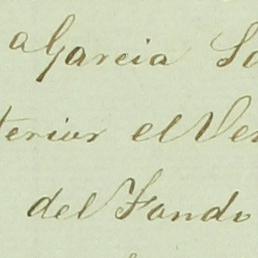 a Garcia
terior el
del Fondo